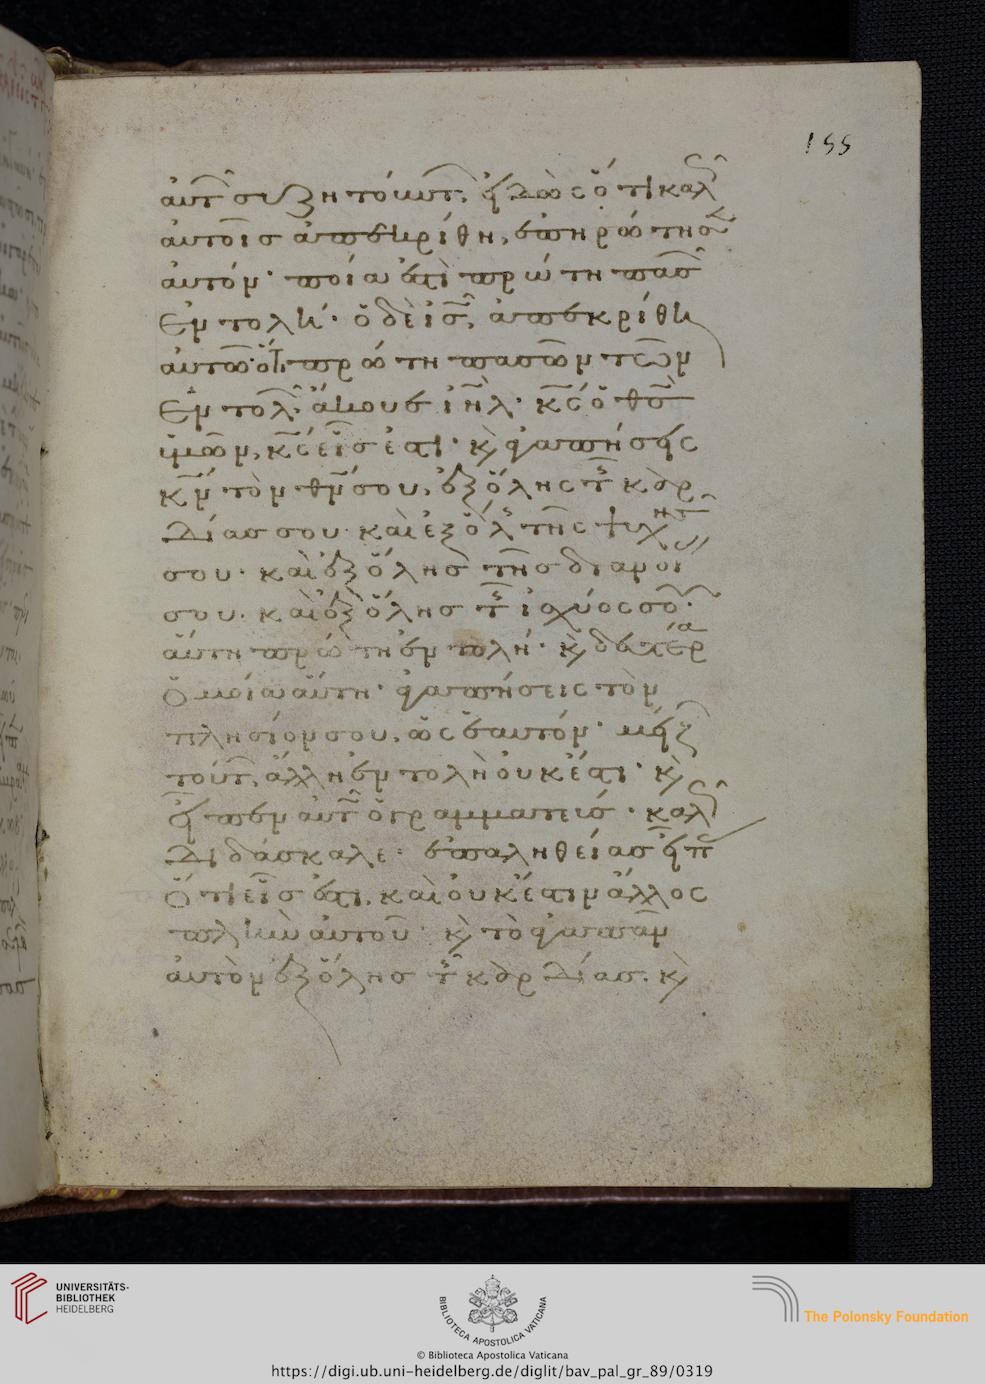 155
αὐτ συζητούντ, εἰδὼς ὅτι καλ
αὐτοῖς ἀπεκρίθη, ἐπηρώτησ
αὐτόν· ποία ἐστὶ πρώτη πασ
ἐντολή· ὁ δὲ ις, ἀπεκρίθη
αὐτῶ· ὅτι πρώτη πασῶν τῶν
ἐντολ, ἄκουε ιηλ· κς ὁ θς
ἡμῶν, κς εἷς ἐστι· κ ἀγαπήσεις
κν τὸν θν σου, ἐξ ὅλης τ καρ
δίας σου· καὶ ἐξ ὅλ τῆς ψυχησ
σου· καὶ ἐξ ὅλησ τῆς διανοί
σου· καὶ ἐξ ὅλης τ ἰσχύος σου·
αὕτη πρώτη ἐντολή· κ δευτέρα
ὁμοία αὕτη· ἀγαπήσεις τὸν
πλησίον σου, ὡς ἑαυτόν· μείζ
τούτ, ἄλλη ἐντολὴ οὐκ ἔστι· κ
εἶπεν αὐτ ὁ γραμματεύσ· καλ
διδάσκαλε· ἐπ ἀληθείας εἶπ
ὅτι εἷς ἐστι, καὶ οὐκ ἔστιν ἄλλος
πλὴν αὐτοῦ· κ τὸ ἀγαπᾶν
αὐτὸν ἐξ ὅλης τ καρδίας· κ
UNIVERSITÄTS-
BIBLIOTHEK
HEIDELBERG
BIBLIOTECA APOSTOLICA VATICANA
The Polonsky Foundation
© Biblioteca Apostolica Vaticana
https://digi.ub.uni-heidelberg.de/diglit/bav_pal_gr_89/0319